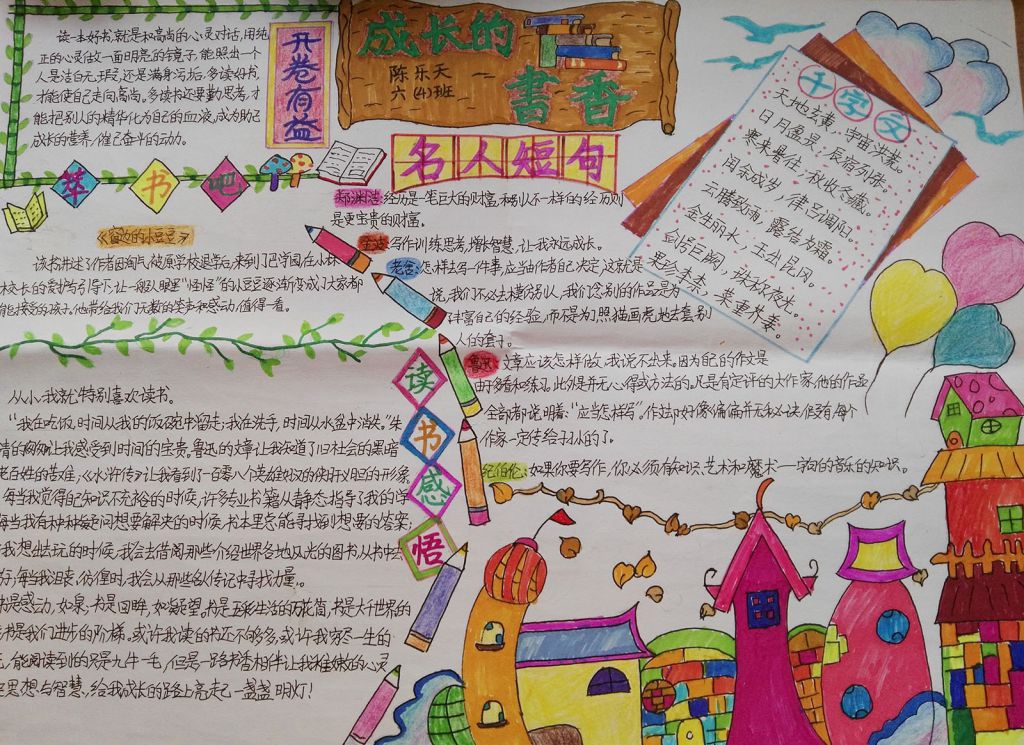 成长的
書香
陈乐天
六(4)班
开卷有益
读一本好书,就是和高尚的心灵对话,用纯
正的心灵做一面明亮的镜子,能照出一个
人是洁白无瑕,还是满身污垢。多读好书,
才能使自己走向高尚。多读书还要勤思考,才
能把别人的精华化为自己的血液,成为助己
成长的营养,催己奋斗的动力。
萃书吧
《窗边的小豆豆》
该书讲述了作者因淘气被原学校退学后,来到了巴学园,在小林
校长的 引导下,让一般人眼里"怪怪"的小豆豆逐渐变成了大家都
能接受的孩子,他带给我们天真的笑声和感动,值得一看。
名人短句
郑渊洁:经历是一笔巨大的财富,和别人不一样的经历则
是更宝贵的财富。
写作训练思考,增长智慧,让我永远成长。
老舍:怎样去写一件事,应当由作者自己决定,这就是
说,我们不必去模仿别人,我们念别的作品是为
丰富自己的经验,而不是为照猫画虎地去套别
人的套子。
鲁迅:文章应该怎样做,我说不出来,因为自己的作文是
由于多看和练习,此外是并无心得或方法的。凡是有定评的大作家,他的作品
全部都说明着:"应当怎样写"。作 好像偏偏并无秘诀,但没有每个
作家一定传给子孙的了。
纪伯伦:如果你要写作,你必须有知识、艺术和魔术——字句的音乐的知识。
千字文
天地玄黄,宇宙洪荒。
日月盈昃,辰宿列张。
寒来暑往,秋收冬藏。
闰余成岁,律吕调阳。
云腾致雨,露结为霜。
金生丽水,玉出昆冈。
剑号巨阙,珠称夜光。
果珍李柰,菜重芥姜。
读书感悟
从小,我就特别喜欢读书。
"我在吃饭,时间从我的饭碗中溜走;我在洗手,时间从水盆中消失。"朱
清的匆匆让我感受到时间的宝贵。鲁迅的文章让我知道了旧社会的黑暗
老百姓的苦难,《水浒传》让我看到了一百零八个英雄好汉的侠肝义胆的形象。
每当我觉得自己知识不充裕的时候,许多专业书籍从静态指导了我的学
每当我有种种疑问想要解决的时候,书本里总能寻找到想要的答案;
我想出去玩的时候,我会去借阅那些介绍世界各地风光的图书,从书中去
;每当我沮丧、彷徨时,我会从那些名人传记中寻找力量。
书是感动,如泉,书是回眸,如凝望。书是五彩生活的万花筒,书是大千世界的
书是我们进步的阶梯。或许我读的书还不够多,或许我穷尽一生的
,能阅读到的只是九牛一毛,但是一路书香相伴,让我稚嫩的心灵
思想与智慧,给我成长的路上亮起一盏盏明灯!